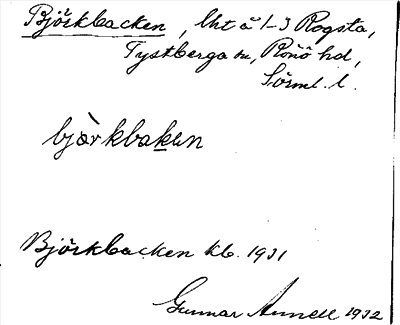 Björkbacken, lht å 1-3 Rogsta,
Tystberga sn, Rönö hd,
Sörml. l.
bjàrkbakən
Björkbacken kb. 1931
Gunnar Annell 1932